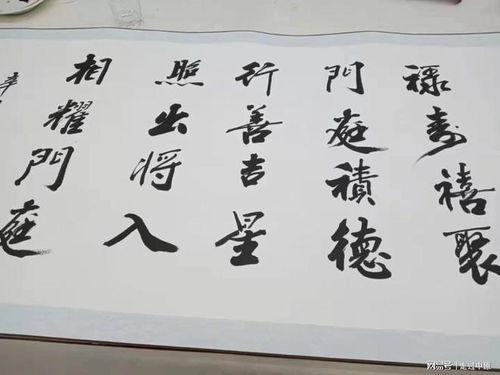 禄寿禧聚
門庭積德
行善吉星
照出将入
相耀門庭
辛
网易号 | 走过中原